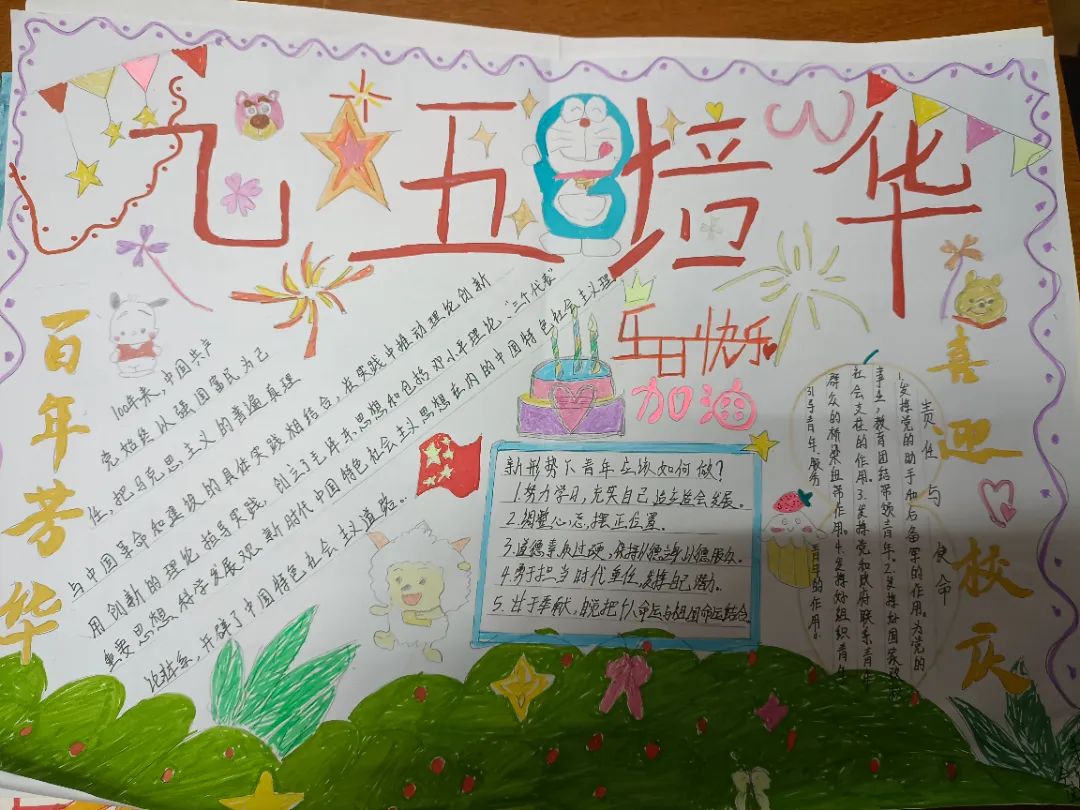 九五培华
百年芳华
喜迎校庆
生日快乐
加油
100年来，中国共产
党始终以强国富民为己
任，把马克思主义的普遍真理
与中国革命和建设的具体实践相结合，在实践中推动理论创新
用创新的理论指导实践，创立了毛泽东思想和包括邓小平理论、“三个代表”
重要思想、科学发展观、新时代中国特色社会主义思想在内的中国特色社会主义理
论体系，开辟了中国特色社会主义道路...
新形势下青年应该如何做？
1.努力学习，充实自己 适应社会发展。
2.调整心态，摆正位置。
3.道德素质过硬，保持以德立身以德服众。
4.勇于担当时代重任，发挥自己潜力。
5.甘于奉献，自觉把个人命运与祖国命运结合
责任与使命
1.发挥党的助手和后备军的作用。为党的
事业，教育团结带领青年。2.发挥好国家政权
社会支柱的作用。3.发挥党和政府联系青年
群众的桥梁纽带作用。4.发挥好组织青年
引导青年、服务青年的作用。